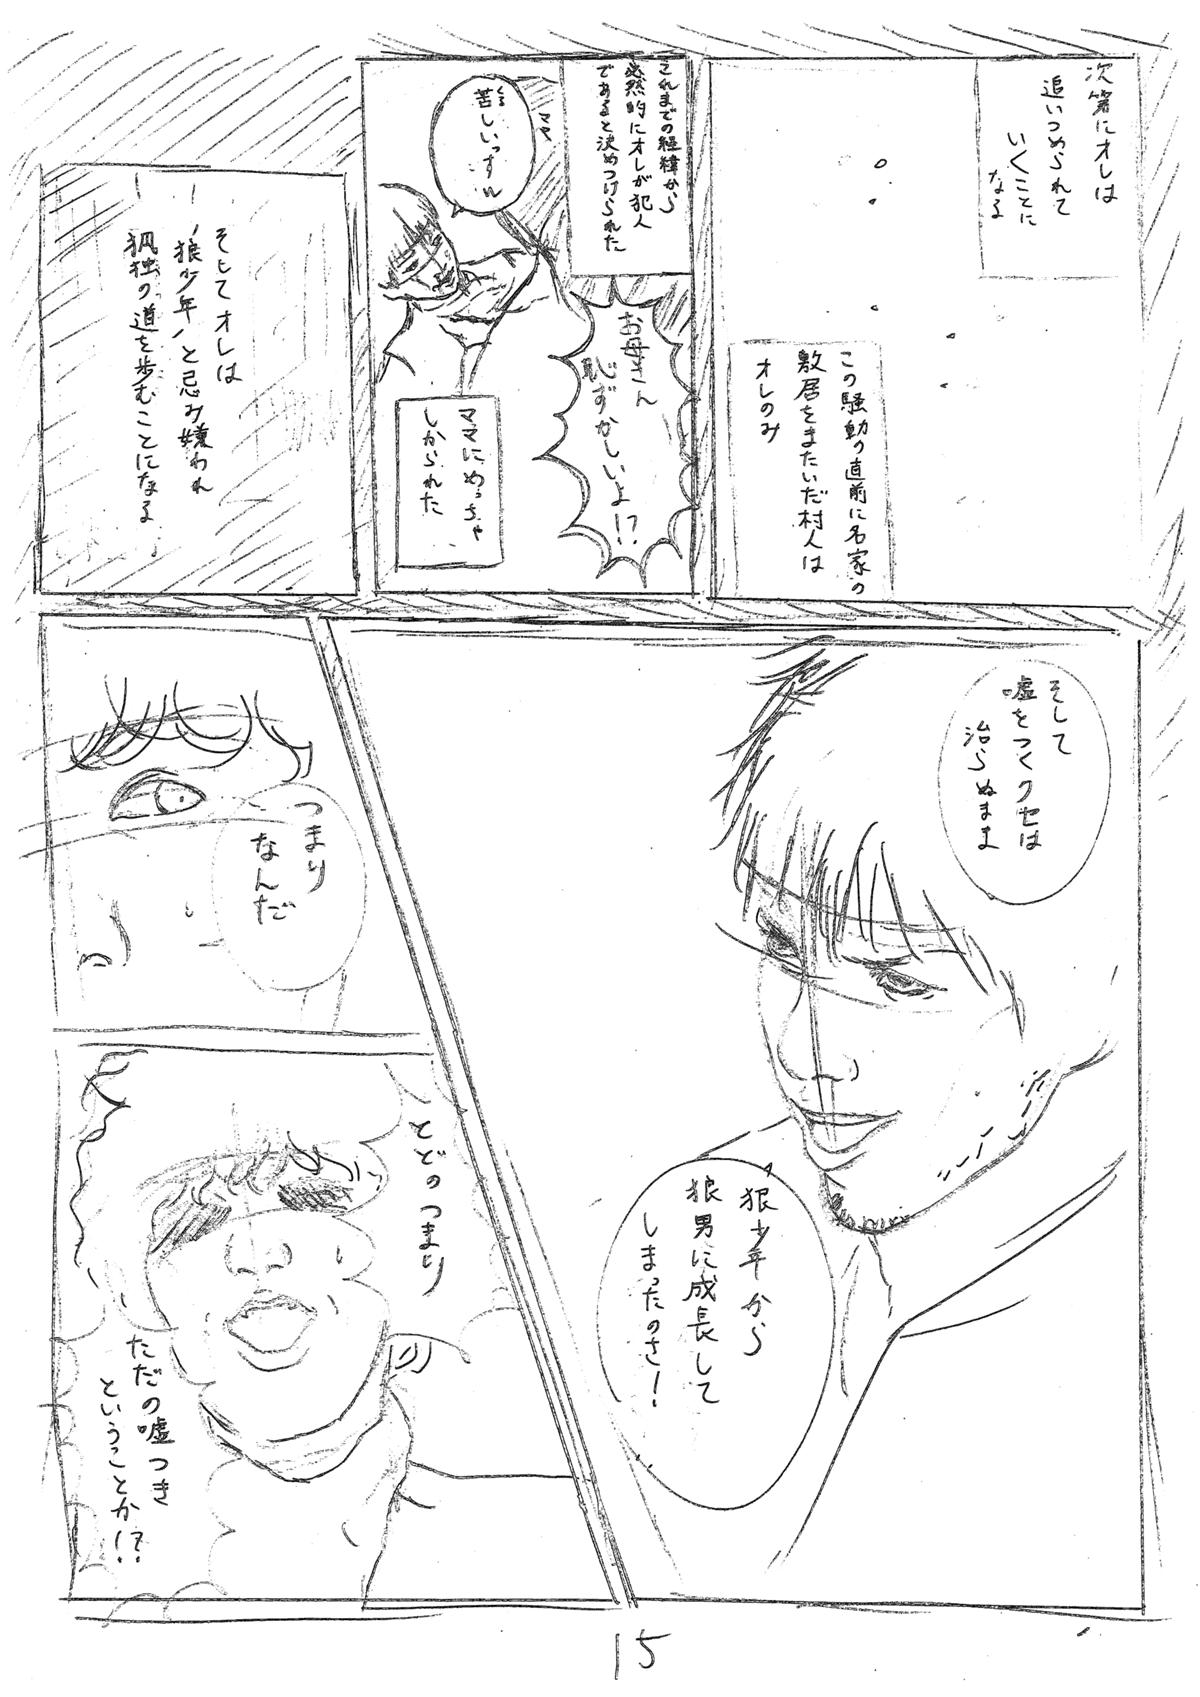 次第にオレは
追いつめられて
いくことに
なる
この騒動の直前に名家の
敷居をまたいだ村人は
オレのみ
これまでの経緯から
必然的にオレが犯人
であると決めつけられた
ママ
苦しいっすル
くる
お母さん
恥ずかしいよ!?
ママにめっちゃ
しかられた
そしてオレは
狼少年、と忌み嫌われ
孤独の道を歩むことになる
そして
嘘をつくクセは
治らぬまま
狼少年から
狼男に成長して
しまったのさ!
つまり
なんだ
とどのつまり
ただの嘘つき
ということか!?
15